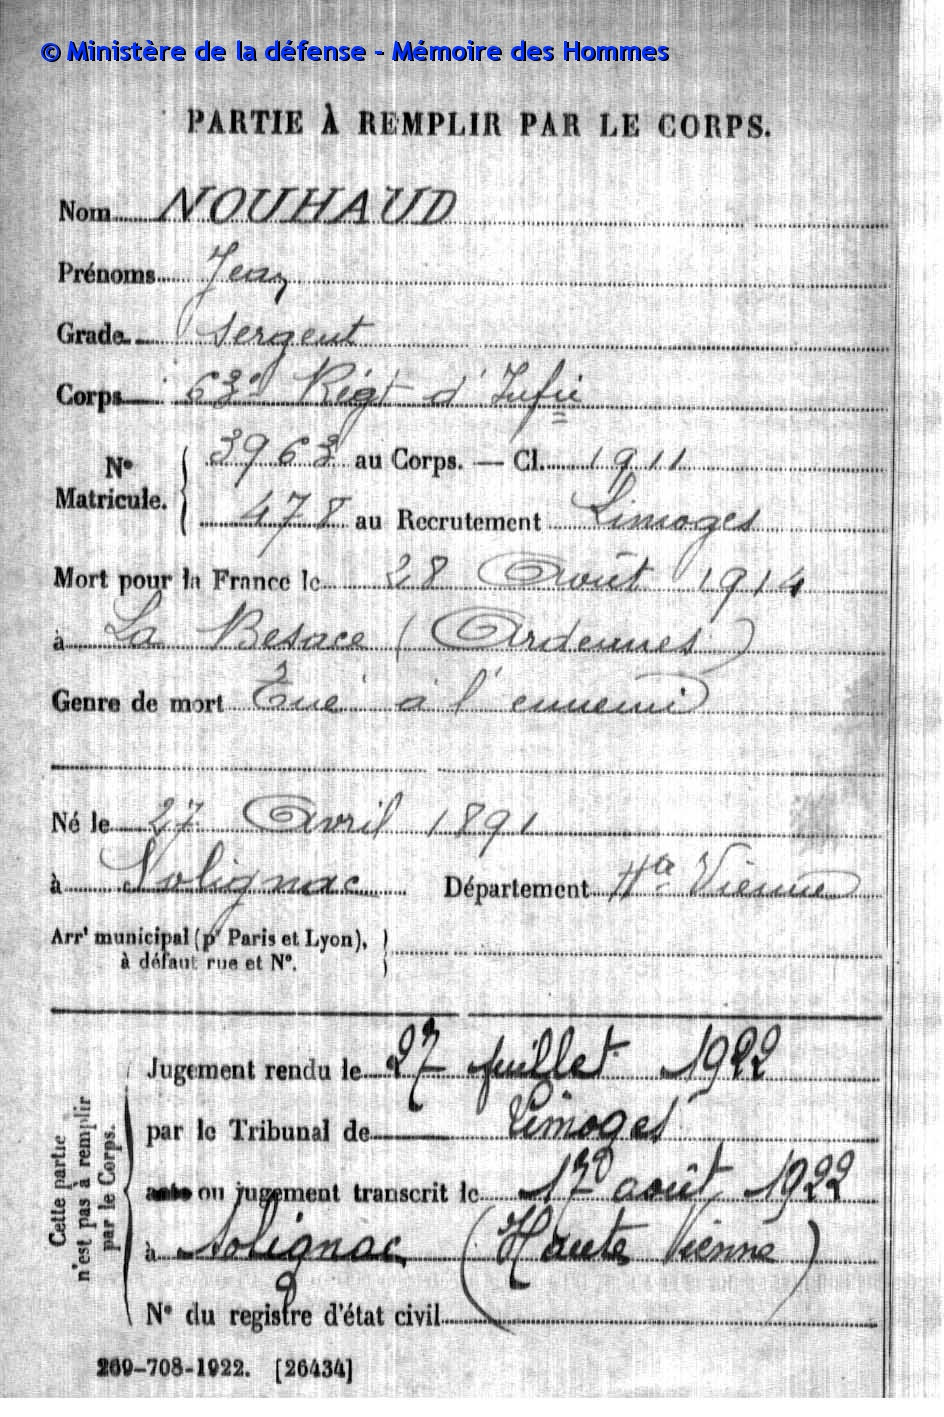 © Ministère de la défense - Mémoire des Hommes
PARTIE À REMPLIR PAR LE CORPS.
Nom NOUHAUD
Prénoms Jean
Grade Sergent
Corps 63e Régt d'Infie
No Matricule. 3963 au Corps. — Cl. 1911
478 au Recrutement Limoges
Mort pour la France le 28 Août 1914
à La Besace (Ardennes)
Genre de mort Tué à l'ennemi
Né le 27 Avril 1891
à Solignac Département Hte Vienne
Arrt municipal (pr Paris et Lyon),
à défaut rue et No.
Cette partie n'est pas à remplir par le Corps.
Jugement rendu le 27 juillet 1922
par le Tribunal de Limoges
acte ou jugement transcrit le 17 août 1922
à Solignac (Haute Vienne)
No du registre d'état civil
269-708-1922. [26434]